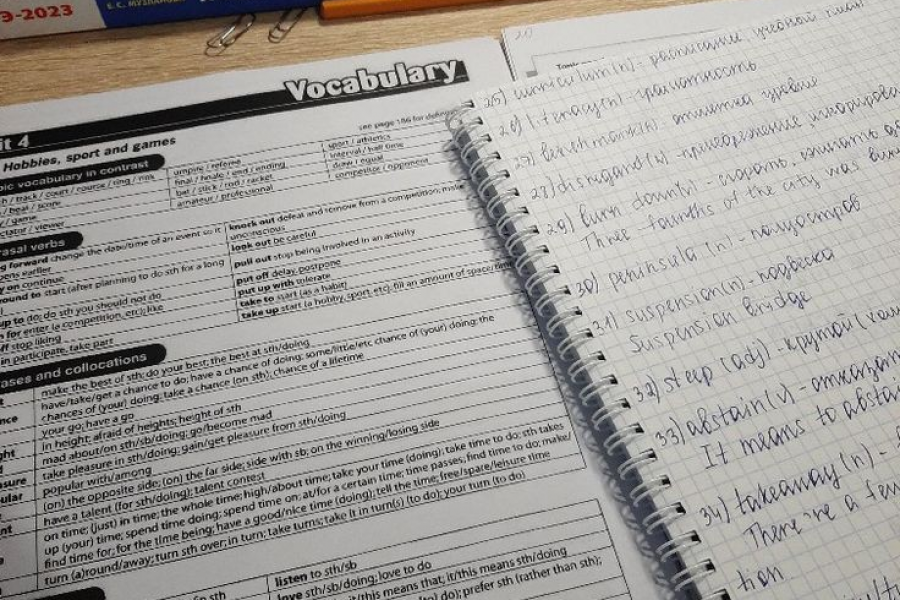 Э-2023
Е. С. МУЗЛАНОВА
Vocabulary
it 4
see page 186 for
Hobbies, sport and games
pic vocabulary in contrast
h / track / court / course / ring / rink
/ beat / score
y / game
ctator / viewer
umpire / referee
final / finale / end / ending
bat / stick / rod / racket
amateur / professional
sport / athletics
interval / half time
draw / equal
competitor / opponent
rasal verbs
g forward change the date/time of an event so it
pens earlier
y on continue
ound to start (after planning to do sth for a long
up to do; do sth you should not do
n for enter (a competition, etc); like
ff stop liking
in participate, take part
knock out defeat and remove from a competition; make
unconscious
look out be careful
pull out stop being involved in an activity
put off delay, postpone
put up with tolerate
take to start (as a habit)
take up start (a hobby, sport, etc); fill an amount of space/time
ases and collocations
make the best of sth; do your best; the best at sth/doing
have/take/get a chance to do; have a chance of doing; some/little/etc chance of (your) doing; the
chances of (your) doing; take a chance (on sth); chance of a lifetime
your go; have a go
in height; afraid of heights; height of sth
mad about/on sth/sb/doing; go/become mad
take pleasure in sth/doing; gain/get pleasure from sth/doing
popular with/among
(on) the opposite side; (on) the far side; side with sb; on the winning/losing side
have a talent (for sth/doing); talent contest
on time; (just) in time; the whole time; high/about time; take your time (doing); take time to do; sth takes
up (your) time; spend time doing; spend time on; at/for a certain time; time passes; find time to do; make/
find time for; for the time being; have a good/nice time (doing); tell the time; free/spare/leisure time
turn (a)round/away; turn sth over; in turn; take turns; take it in turn(s) (to do); your turn (to do)
listen to sth/sb
love sth/sb/doing; love to do
it/this means that; it/this means sth/doing
to do); prefer sth (rather than sth);
25) curriculum(n) - расписание, учебный план
26) literacy(n) - грамотность
27) benchmark(n) - отметка уровня
28) disregard(n) - пренебрежение, игнорирова
29) burn down(v) - сгорать, сжигать до
Three-fourths of the city was burn
30) peninsula (n) - полуостров
31) suspension(n) - подвеска
Suspension bridge
32) steep (adj) - крутой (
33) abstain(v) - отказат
It means to abstai
34) takeaway (n) -
There're a few
tion